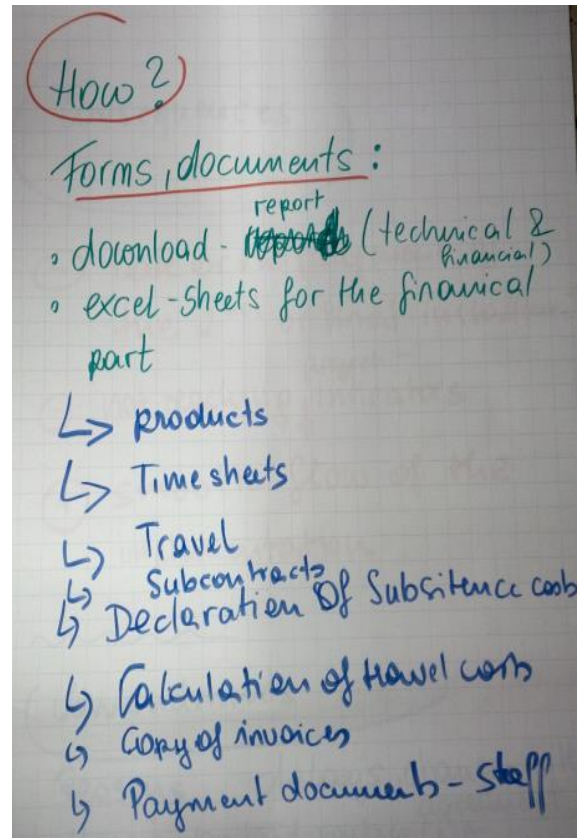 How?
Forms, documents:
• download - report (technical & financial)
• excel-sheets for the finanical
part
↳ products
↳ Timesheets
↳ Travel
↳ Subcontracts
↳ Declaration Of Subsitence costs
↳ Calculation of travel costs
↳ Copy of invoices
↳ Payment documents - staff